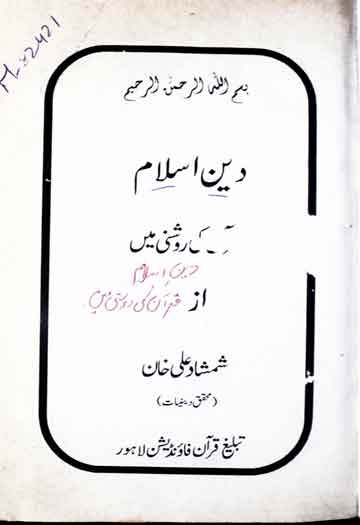 بسم اللہ الرحمن الرحیم
دین اسلام
کی روشنی میں
دین اسلام
از
قرآن کی روشنی میں
شمشاد علی خان
(محقق دینیات)
تبلیغ قرآن فاؤنڈیشن لاہور